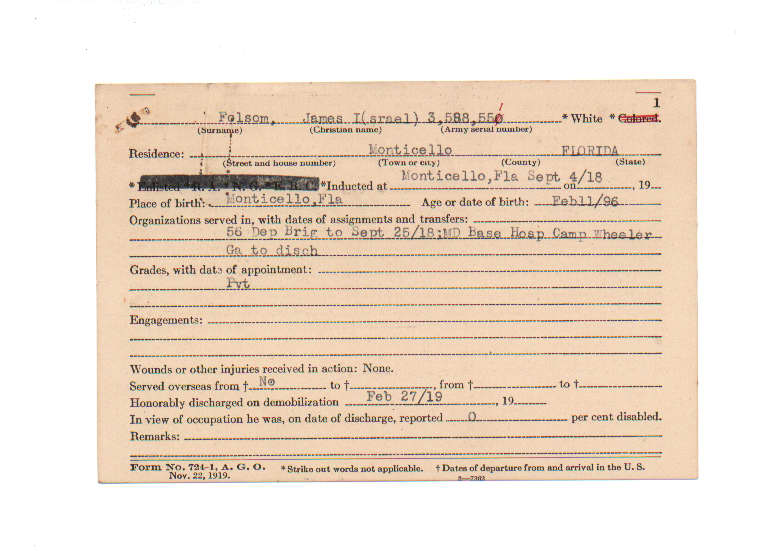 1
Folsom, James I(srael) 3,588,550 * White * Colored.
(Surname) (Christian name) (Army serial number)
Residence: Monticello FLORIDA
(Street and house number) (Town or city) (County) (State)
Monticello,Fla Sept 4/18
* Enlisted * R. A. * N. G. * E. R. C. *Inducted at on , 19
Place of birth: Monticello,Fla Age or date of birth: Feb11/96
Organizations served in, with dates of assignments and transfers:
56 Dep Brig to Sept 25/18;MD Base Hosp Camp Wheeler
Ga to disch
Grades, with date of appointment:
Pvt
Engagements:
Wounds or other injuries received in action: None.
Served overseas from † No to † , from † to †
Honorably discharged on demobilization Feb 27/19 , 19
In view of occupation he was, on date of discharge, reported 0 per cent disabled.
Remarks:
Form No. 724-1, A. G. O. *Strike out words not applicable. † Dates of departure from and arrival in the U. S.
Nov. 22, 1919. 3—7382